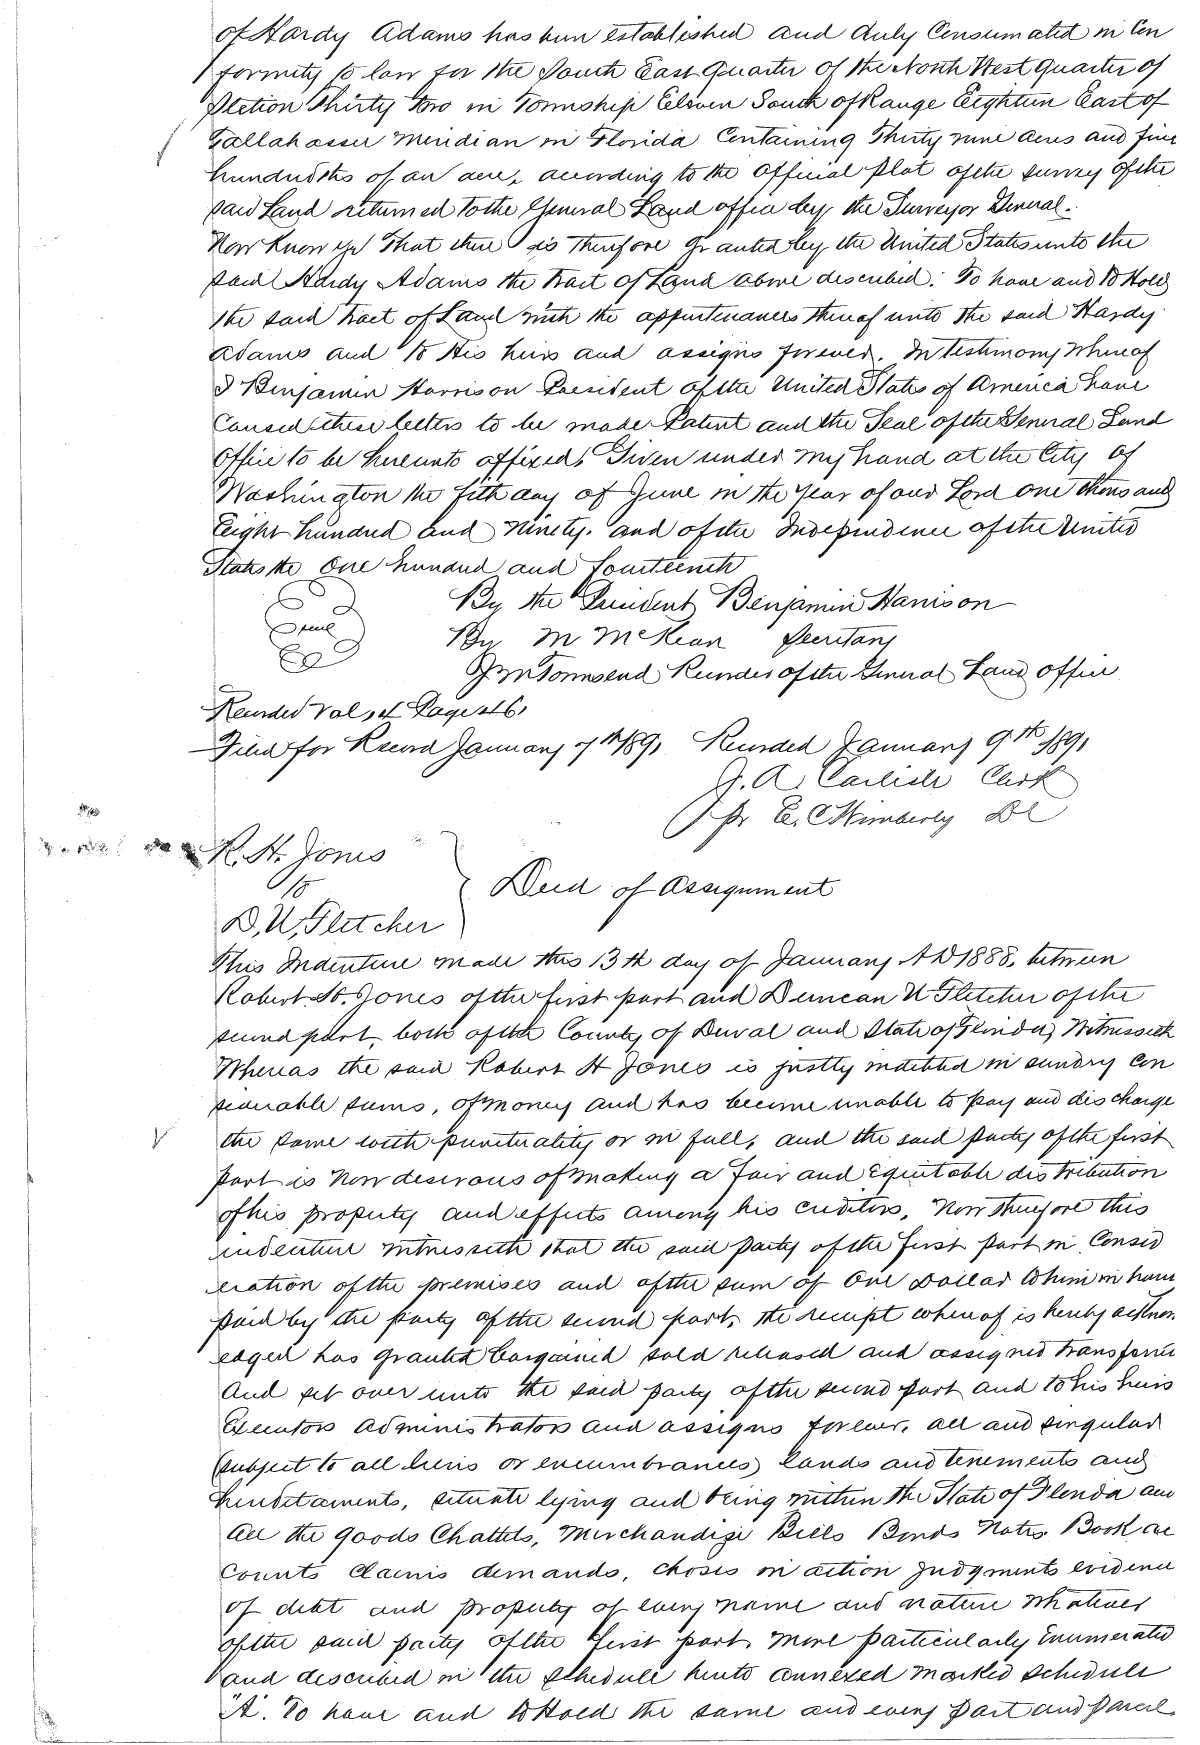 of Hardy Adams has been established and duly Consumated in Con
formity to law for the South East quarter of the North West quarter of
Section Thirty two in Township Eleven South of Range Eighteen East of
Tallahassee Meridian in Florida Containing Thirty nine acres and five
hundredths of an acre, according to the Official Plat of the survey of the
said Land returned to the General Land office by the Surveyor General.
Now Know ye That there is therefore granted by the United States unto the
said Hardy Adams the tract of Land above described. To have and to Hold
the said tract of Land with the appurtenances thereof unto the said Hardy
Adams and to His heirs and assigns forever. In testimony Whereof
I Benjamin Harrison President of the United States of America have
Caused these letters to be made Patent and the Seal of the General Land
Office to be hereunto affixed. Given under my hand at the City of
Washington the fith day of June in the year of our Lord one thousand
Eight hundred and Ninety. and of the Independence of the United
States the One hundred and fourteenth
By the President Benjamin Harrison
Seal
By M McKean Secretary
J M Townsend Recorder of the General Land office
Recorded Vol, 4 Page 446,
Filed for Record January 7th 1891 Recorded January 9th 1891
J. A Carlisle Clerk
pr E. C Wimberly DC
R. H. Jones
to
Deed of Assignment
D. U. Fletcher
This Indenture made this 13th day of January AD 1888, between
Robert H. Jones of the first part and Duncan U Fletcher of the
second part, both of the County of Duval and State of Florida, Witnesseth
Whereas the said Robert H Jones is justly indebted in sundry Con
siderable sums, of money and has become unable to pay and discharge
the same with punctuality or in full, and the said party of the first
part is Now desirous of making a fair and Equitable distribution
of his property and effects among his creditors, Now therefore this
indenture witnesseth that the said party of the first part in Consid
eration of the premises and of the sum of One Dollar to him in hand
paid by the party of the second part, the receipt whereof is hereby acknow
edged has granted bargained sold released and assigned transferred
And set over unto the said party of the second part and to his heirs
Executors administrators and assigns forever, all and singular
(subject to all liens or encumbrances) lands and tenements and
hereditaments, situate lying and being within the State of Florida and
all the goods Chattels, Merchandize Bills Bonds Notes Book ac
counts Claims demands, choses in action judgments evidence
of debt and property of every name and nature whatever
of the said party of the first part, more particularly Enumerated
and described in the schedule hereto annexed marked schedule
"A". To have and to Hold the same and every part and parcel